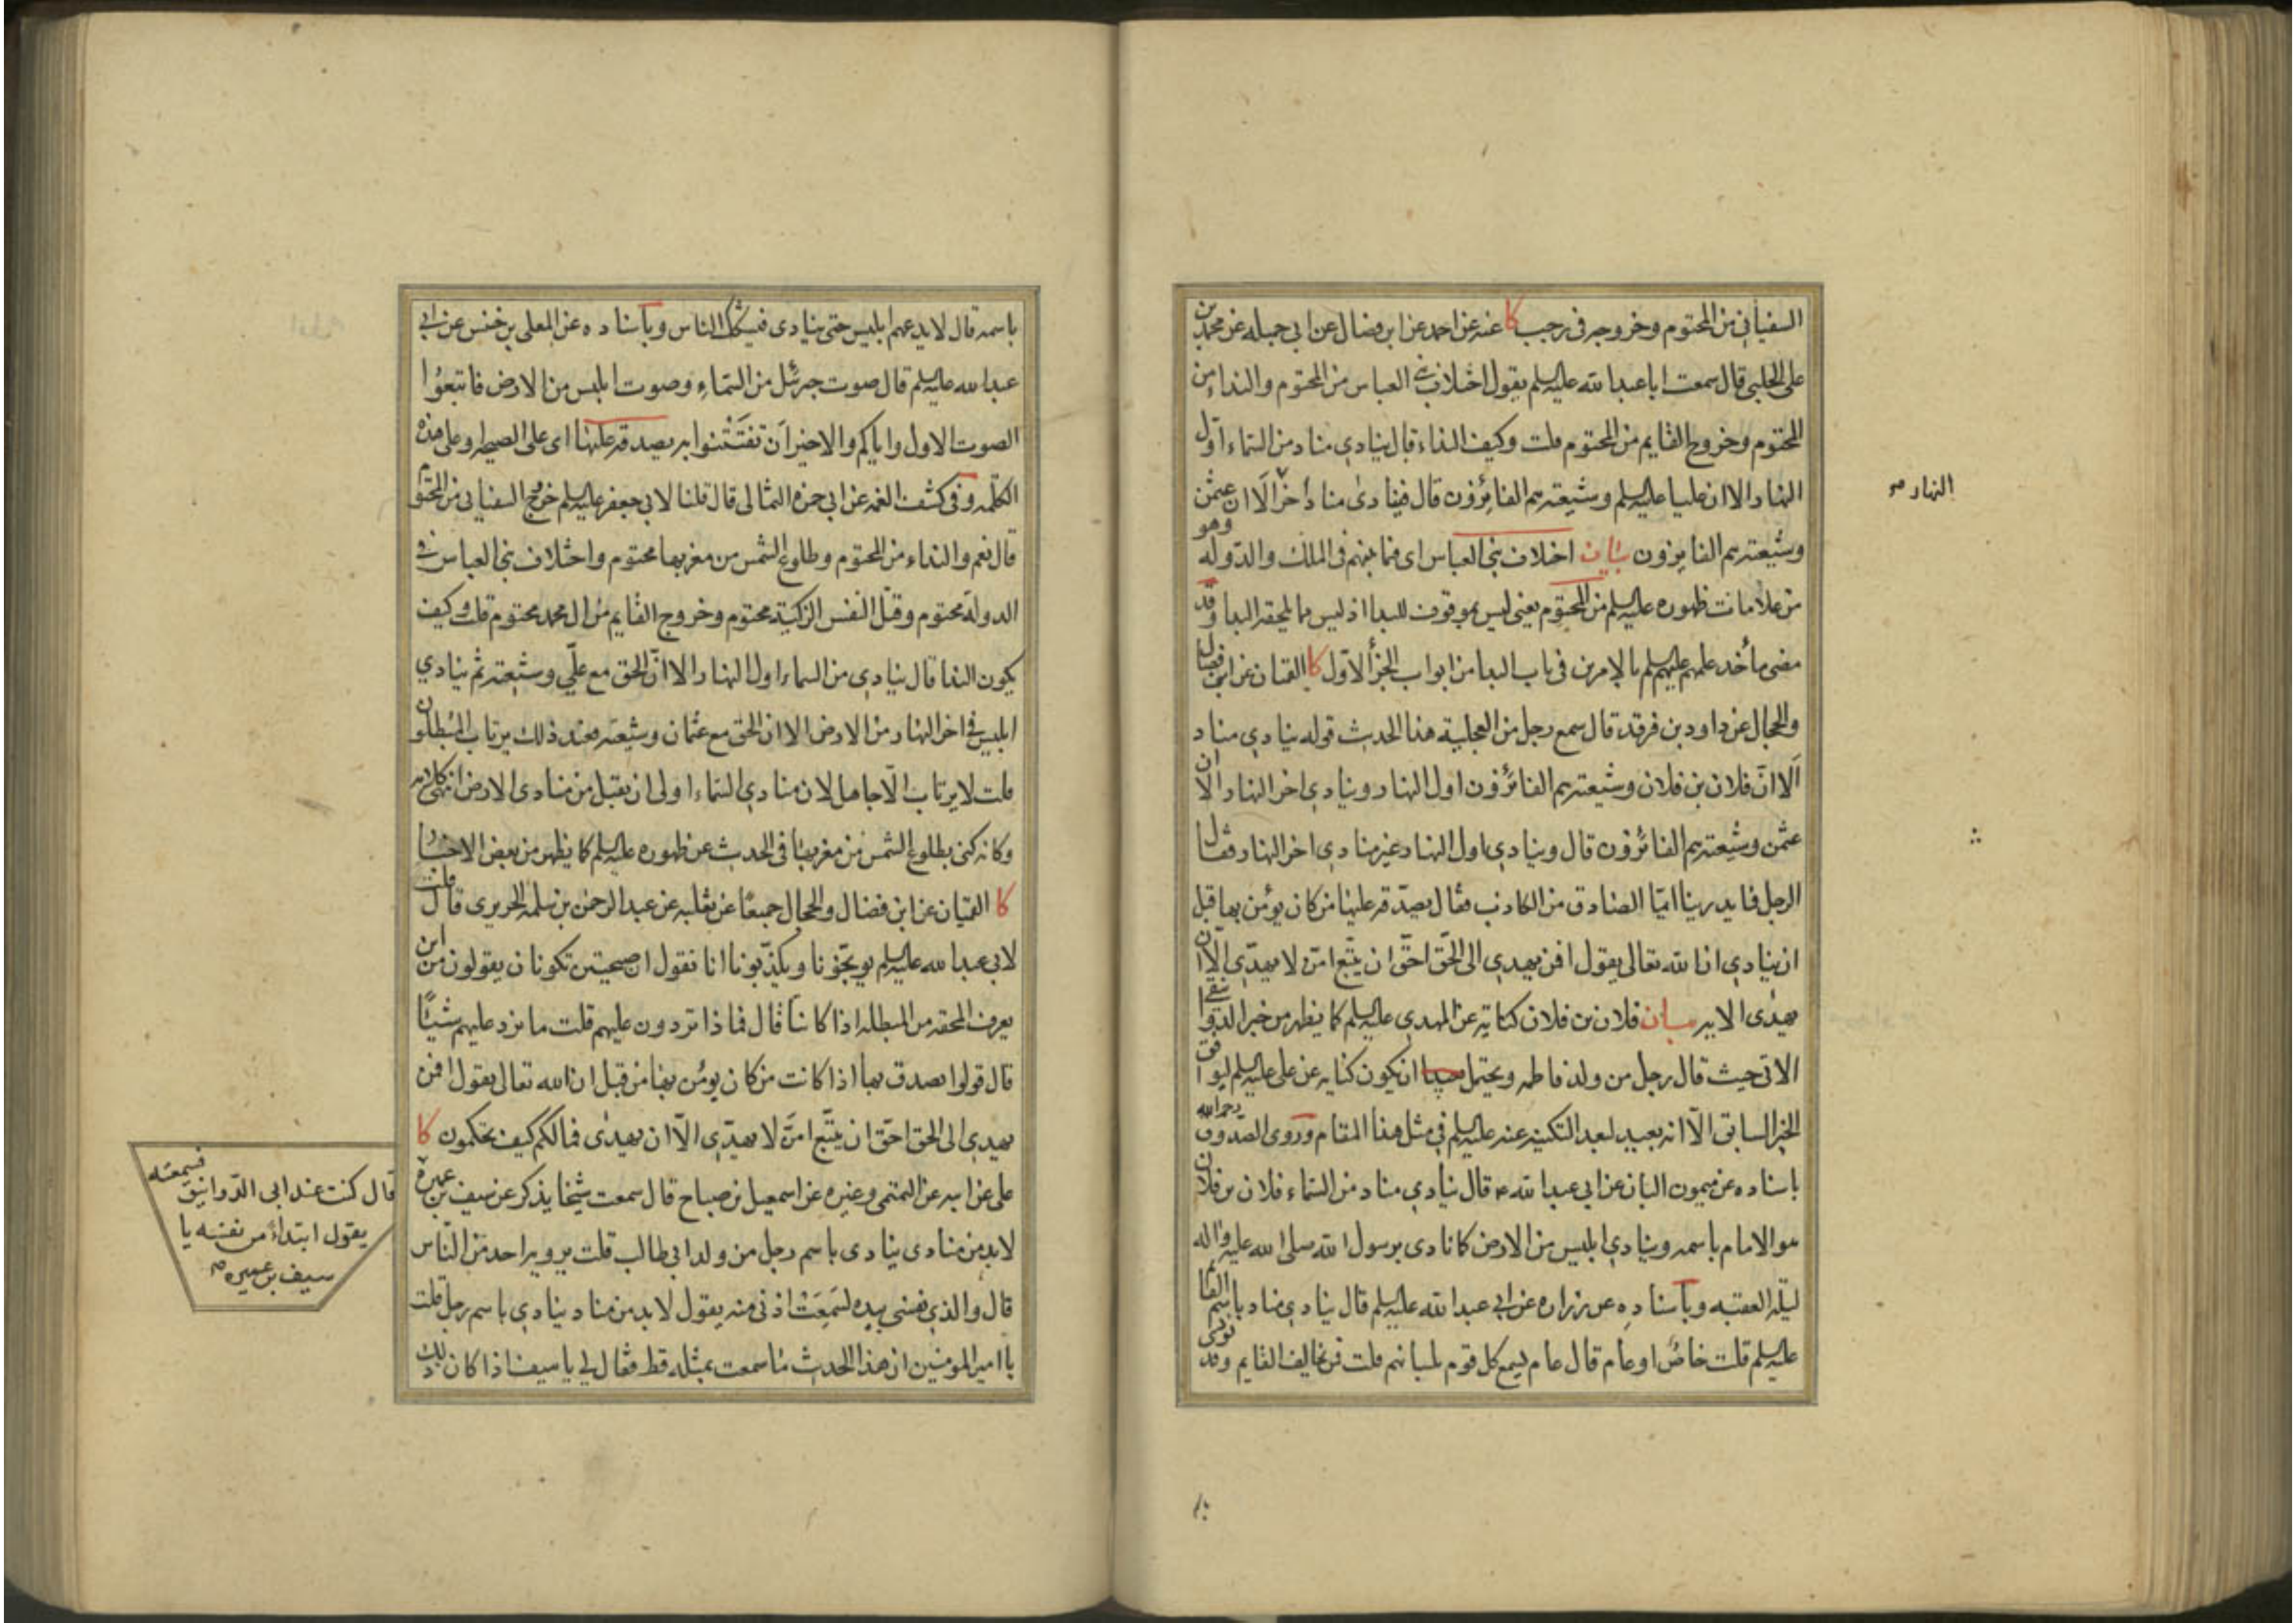 السفياني من المحتوم وخروجه في رجب كا عنه عن احمد عن ابن فضال عن ابي جميله عن محمد بن
على الحلبي قال سمعت ابا عبدا لله عليه السلم يقول اختلاف بنى العباس من المحتوم والنداء من
المحتوم وخروج القايم من المحتوم قلت وكيف النداء قال ينادي مناد من السماء اول
النهار الا ان عليا عليه السلم وشيعته هم الفائزون قال فينادى مناد اخر الا ان عثمن
النهار صح
وشيعته هم الفايزون بيان اختلاف بنى العباس اى فيما بينهم فى الملك والدوله وهو
من علامات ظهوره عليه السلم من المحتوم يعنى ليس بموقوف للبدا اذ ليس مما يلحقه البدا وقد
مضى مأخد علمهم عليهم السلم بالامرين فى باب البدا من ابواب الجزأ الاول كا القميان عن ابن فضال
والحجال عن داود بن فرقد قال سمع رجل من العجلية هذا الحديث قوله ينادي مناد
الا ان فلان بن فلان وشيعته هم الفائزون اول النهار وينادي اخر النهار الا ان
عثمن وشيعته هم الفائزون قال وينادي اول النهار غير منادي اخر النهار فقال
الرجل فما يدرينا ايما الصادق من الكاذب فقال يصدقه عليها من كان يؤمن بها قبل
ان ينادي ان الله تعالى يقول افمن يهدي الى الحق احق ان يتبع امن لا يهدي الا ان
يهدى الايه بيان فلان بن فلان كناية عن المهدي عليه السلم كما يظهر من خبر
الاتى حيث قال رجل من ولد فاطمه ويحتمل ان يكون كنايه عن على عليه السلم ليوافق
الخبر السابق الا انه بعيد لبعد التكنيه عنه عليه السلم في مثل هذا المقام وروى الصدوق رحمه الله
باسناده عن ميمون البان عن ابي عبدا لله ع قال ينادي مناد من السماء فلان بن فلان
هو الامام باسمه وينادي ابليس من الارض كما نادى برسول الله صلى الله عليه واله
ليلة العقبه وباسناده عن زراره عن ابي عبدا لله عليه السلم قال ينادي مناد باسم القائم
عليه السلم قلت خاص او عام قال عام يسمع كل قوم بلسانهم قلت فمن يخالف القايم وقد نودى
باسمه قال لا يدعهم ابليس حتى ينادى فيشكك الناس وباسناده عن المعلى بن خنيس عن ابي
عبدا لله عليه السلم قال صوت جبرئيل من السماء وصوت ابليس من الارض فاتبعوا
الصوت الاول واياكم والاخير ان تفتتنوا به يصدقه عليها اى على الصيحه وعلى هذه
الكلمه وفى كشف الغمه عن ابي حمزه الثمالى قال قلنا لابي جعفر عليه السلم خروج السفيانى من المحتوم
قال نعم والنداء من المحتوم وطلوع الشمس من مغربها محتوم واختلاف بنى العباس فى
الدولة محتوم وقتل النفس الزكية محتوم وخروج القايم من ال محمد محتوم قلت وكيف
يكون الندا قال ينادي من السماء اول النهار الا ان الحق مع علي وشيعته ثم ينادي
ابليس في اخر النهار من الارض الا ان الحق مع عثمان وشيعته فعند ذلك يرتاب المبطلون
قلت لا يرتاب الا جاهل لان منادي السماء اولى ان يقبل من منادى الارض انتهى كلامه
وكانه كنى بطلوع الشمس من مغربها فى الحديث عن ظهوره عليه السلم كما يظهر من بعض الاخبار
كا القميان عن ابن فضال والحجال جميعا عن ثعلبه عن عبد الرحمن بن مسلمه الجريرى قال قلت
لابى عبدا لله عليه السلم يوبخونا ويكذبونا انا نقول ان صيحتين تكونان يقولون من اين
يعرف المحقه من المبطله اذا كانتا قال فماذا تردون عليهم قلت ما نرد عليهم شيئا
قال قولوا يصدق بها اذا كانت من كان يؤمن بها من قبل ان الله تعالى يقول افمن
يهدي الى الحق احق ان يتبع امن لا يهدي الا ان يهدى فمالكم كيف تحكمون كا
على عن ابيه عن التميمى وغيره عن اسمعيل بن صباح قال سمعت شيخا يذكر عن سيف بن عميرة
قال كنت عند ابى الدوانيق فسمعته
يقول ابتداء من نفسه يا
سيف بن عميره صح
لابد من منادى ينادى باسم رجل من ولد ابي طالب قلت يرويه احد من الناس
قال والذي نفسى بيده لسمعت اذنى منه يقول لابد من مناد ينادي باسم رجل قلت
يا امير المومنين ان هذا الحديث ما سمعت بمثله قط فقال لي يا سيف اذا كان ذلك